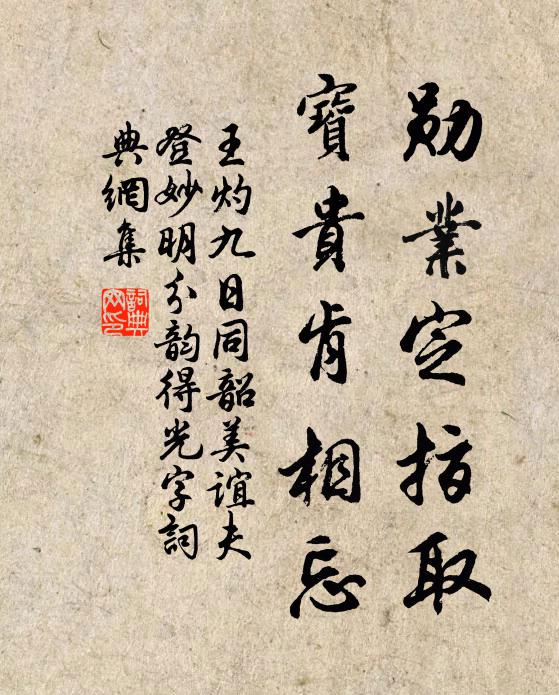 勛業定指取
寶貴肯相忘
王灼九日同韶美誼夫
登妙明分韵得光字詞
典網集
詞典
网印